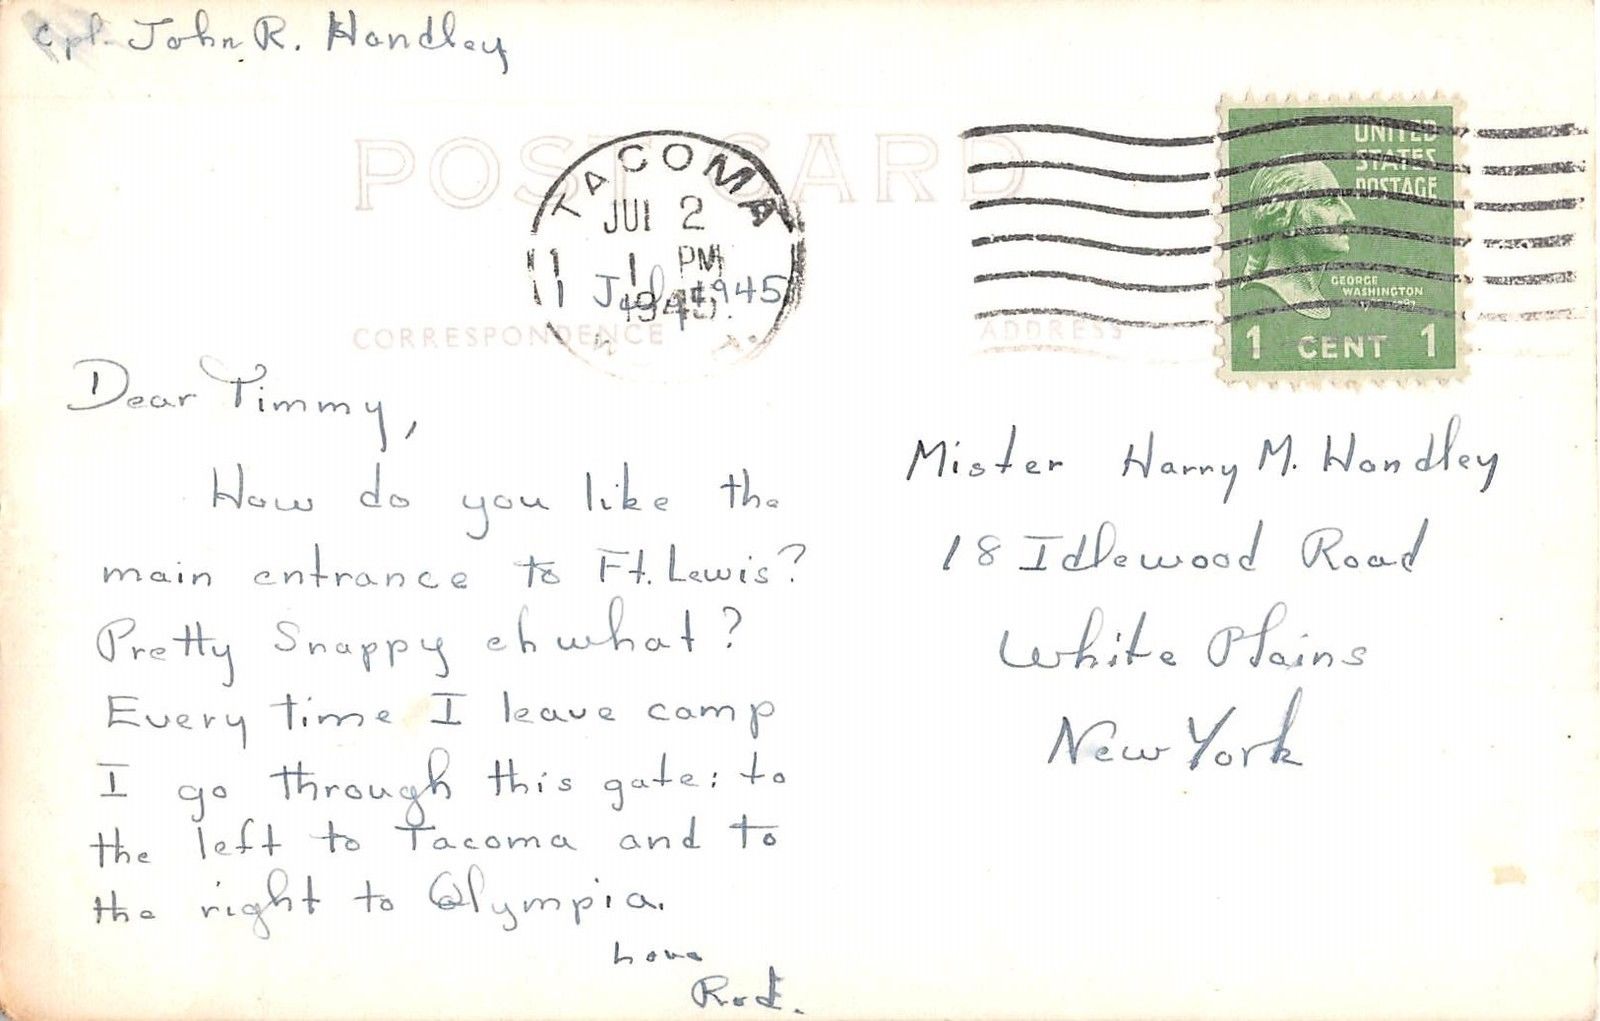 Cpl. John R. Handley
POST CARD
TACOMA
JUL 2
1 PM
1945
1 July 1945
UNITED
STATES
POSTAGE
GEORGE
WASHINGTON
1 CENT 1
CORRESPONDENCE
ADDRESS
Dear Timmy,
How do you like the
main entrance to Ft. Lewis?
Pretty Snappy eh what?
Every time I leave camp
I go through this gate: to
the left to Tacoma and to
the right to Olympia.
Love
Rod.
Mister Harry M. Handley
18 Idlewood Road
White Plains
New York